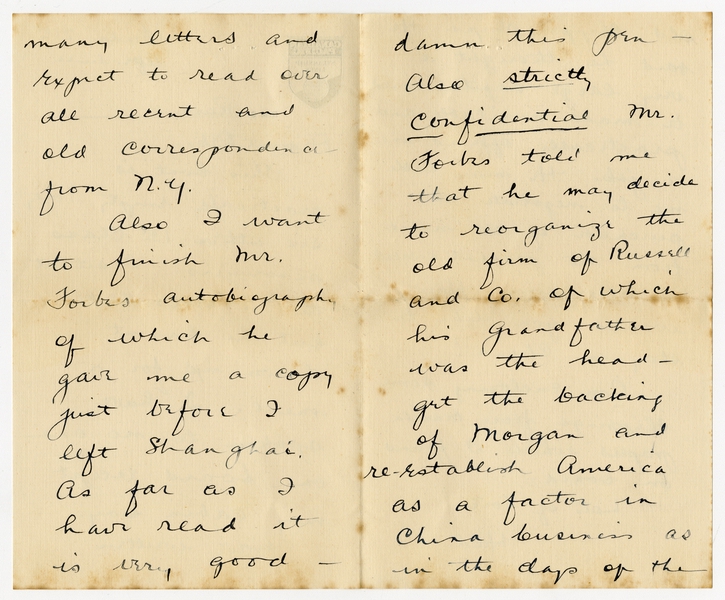 many letters and
expect to read over
all recent and
old correspondence
from N.Y.
Also I want
to finish Mr.
Forbes autobiography
of which he
gave me a copy
just before I
left Shanghai.
As far as I
have read it
is very good —
damn this pen —
Also strictly
confidential Mr.
Forbes told me
that he may decide
to reorganize the
old firm of Russell
and Co. of which
his grandfather
was the head —
get the backing
of Morgan and
re-establish America
as a factor in
China business as
in the days of the